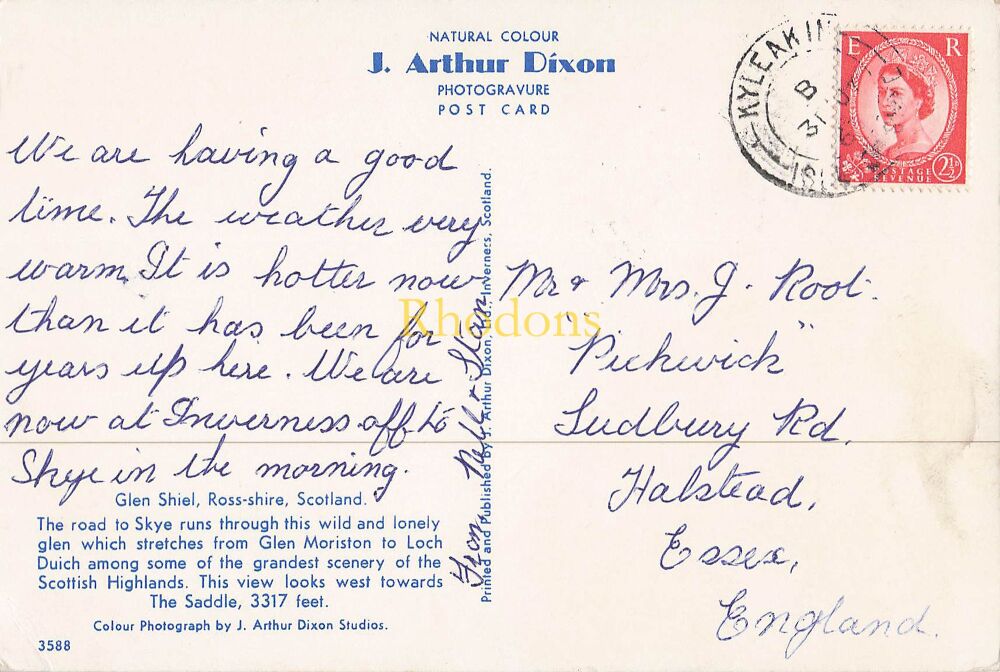 NATURAL COLOUR
J. Arthur Dixon
PHOTOGRAVURE
POST CARD
KYLEAKIN
B
E R
POSTAGE
REVENUE
2½D
We are having a good
time. The weather very
warm. It is hotter now
than it has been for
years up here. We are
now at Inverness off to
Skye in the morning.
From, Nell & Stan
Printed and Published by J. Arthur Dixon, Ltd., Inverness, Scotland.
Mr & Mrs. J. Root.
"Pickwick"
Sudbury Rd,
Halstead,
Essex,
England.
Rhodons
Glen Shiel, Ross-shire, Scotland.
The road to Skye runs through this wild and lonely
glen which stretches from Glen Moriston to Loch
Duich among some of the grandest scenery of the
Scottish Highlands. This view looks west towards
The Saddle, 3317 feet.
Colour Photograph by J. Arthur Dixon Studios.
3588